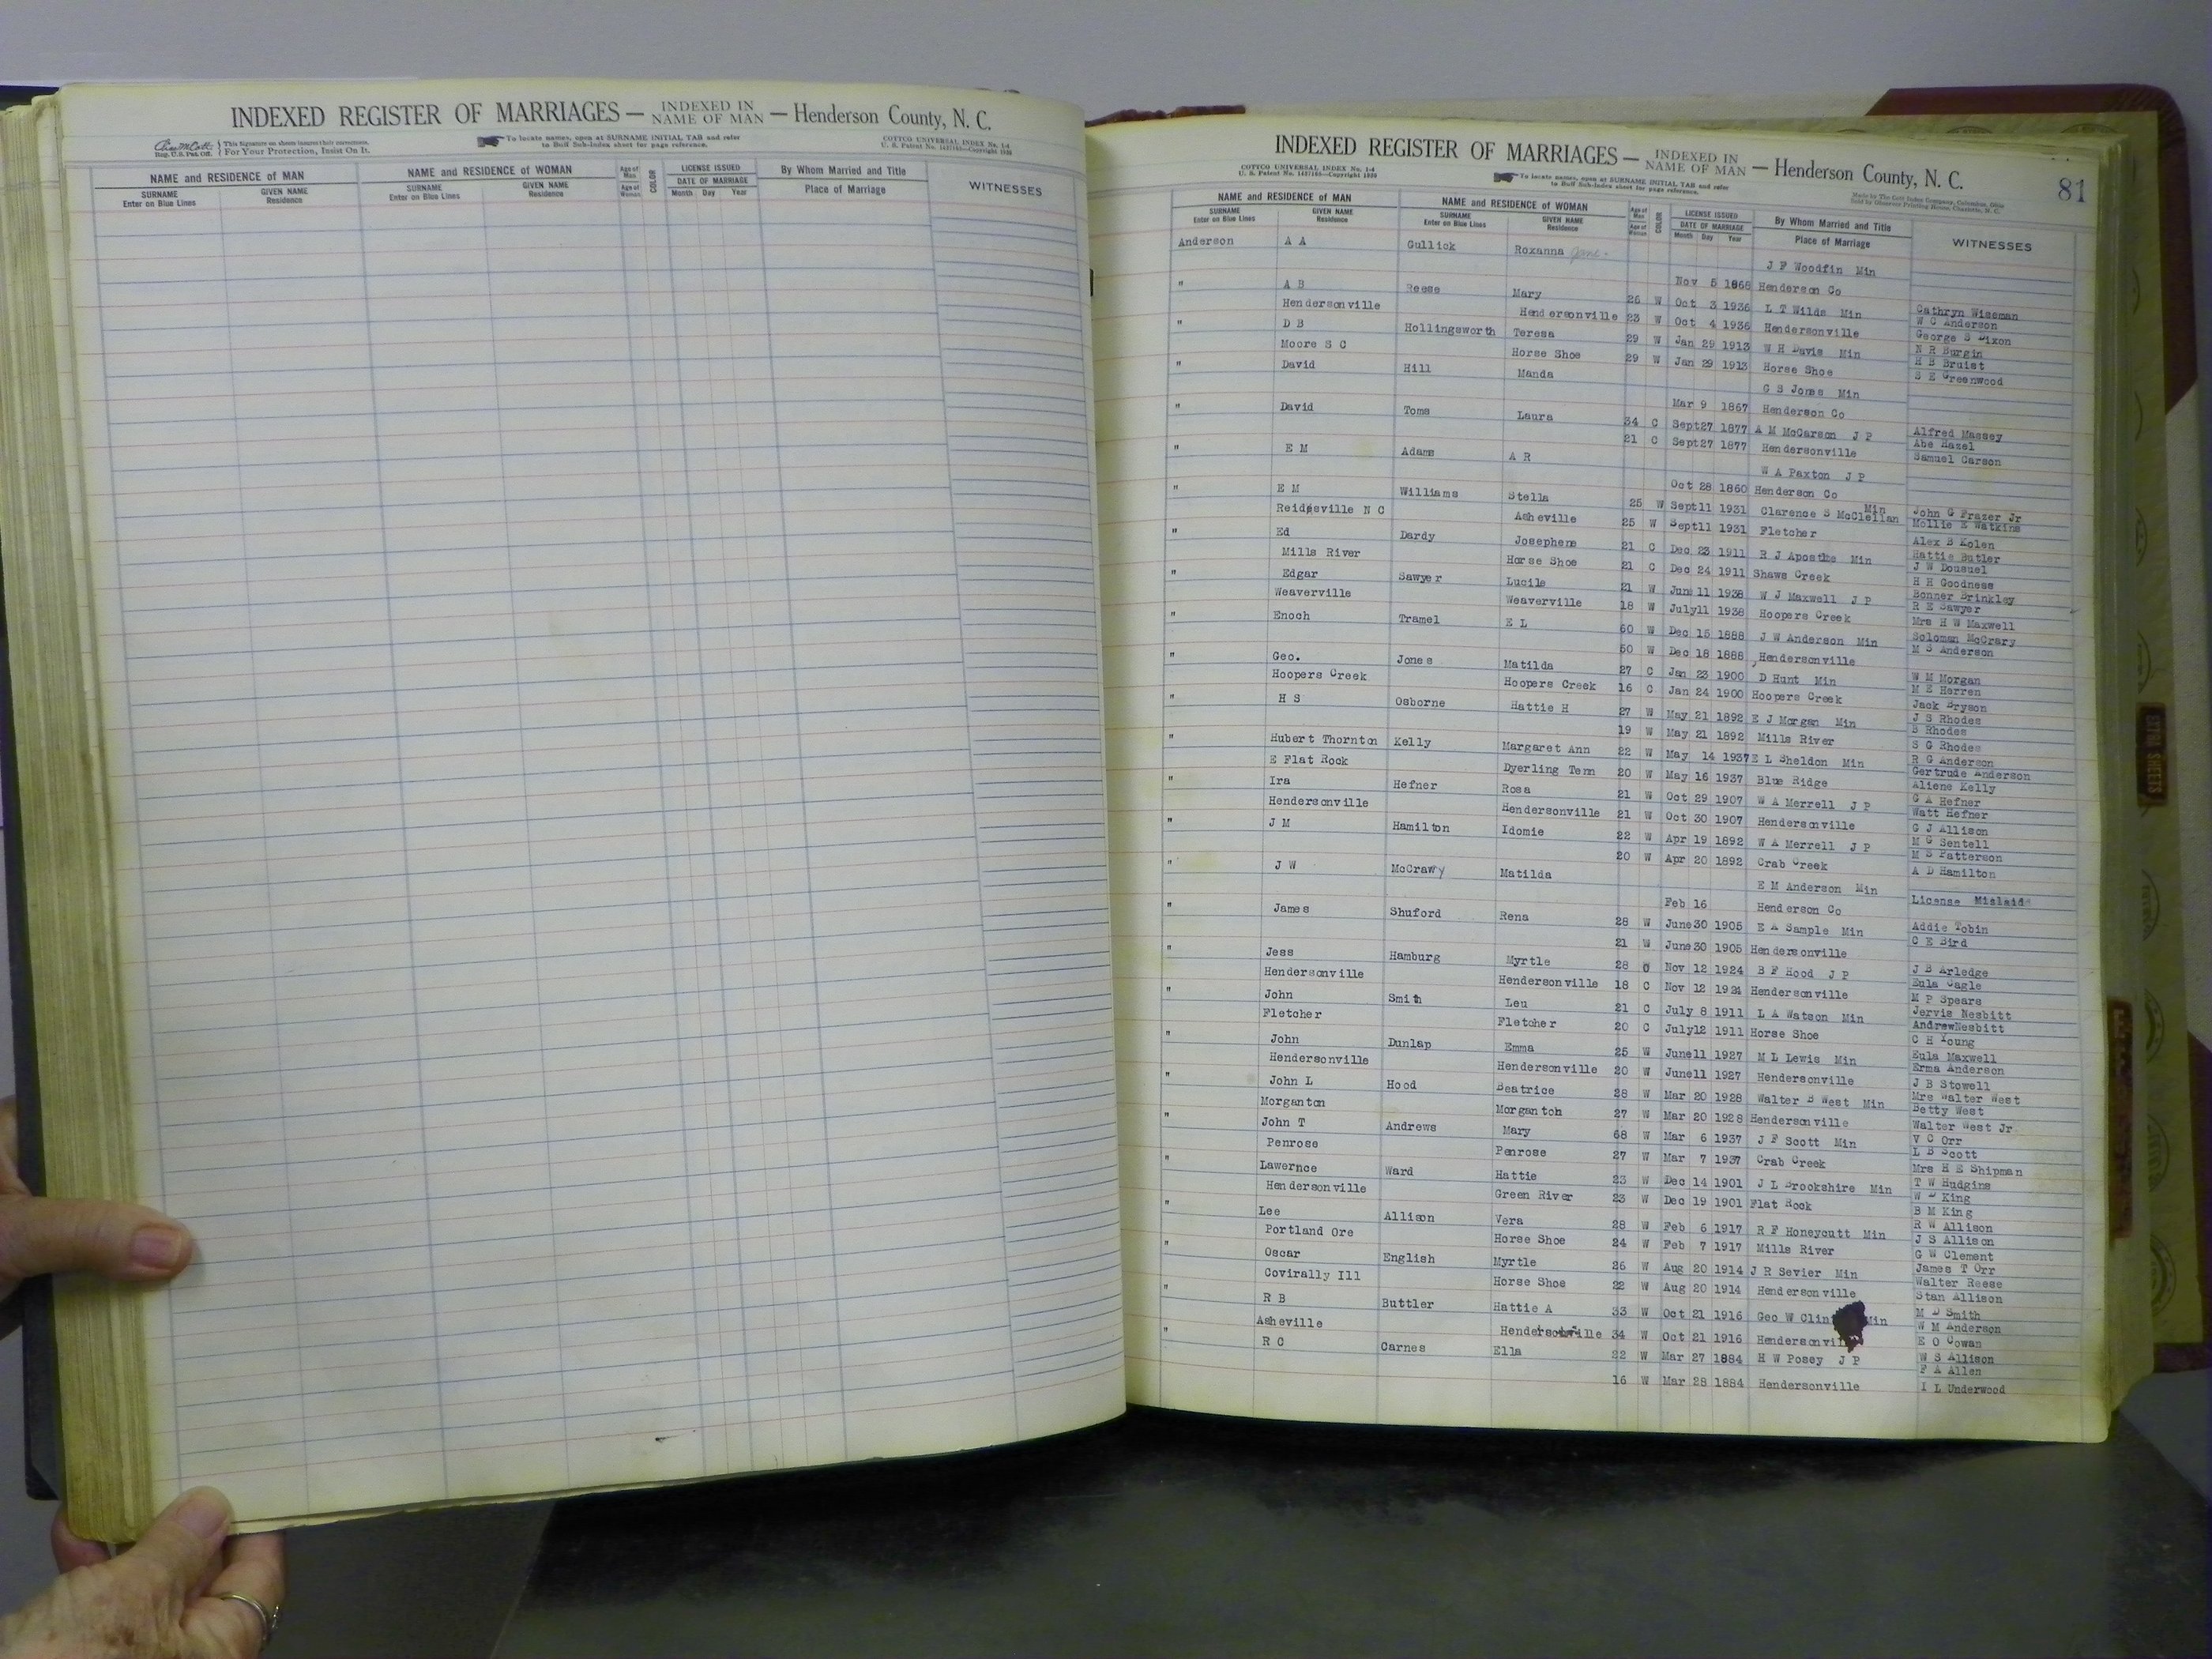 INDEXED REGISTER OF MARRIAGES — INDEXED IN NAME OF MAN — Henderson County, N. C.
Reg. U.S. Pat. Off. This Signature on sheets insures their correctness. For Your Protection, Insist On It.
To locate names, open at SURNAME INITIAL TAB and refer to Buff Sub-Index sheet for page reference.
COTTCO UNIVERSAL INDEX No. 1-4
NAME and RESIDENCE OF MAN NAME and RESIDENCE OF WOMAN Age of Man Age of Woman COLOR LICENSE ISSUED By Whom Married and Title WITNESSES
SURNAME Enter on Blue Lines GIVEN NAME Residence SURNAME Enter on Blue Lines GIVEN NAME Residence DATE OF MARRIAGE Month Day Year Place of Marriage
INDEXED REGISTER OF MARRIAGES — INDEXED IN NAME OF MAN — Henderson County, N. C. 81
COTTCO UNIVERSAL INDEX No. 1-4
To locate names, open at SURNAME INITIAL TAB and refer to Buff Sub-Index sheet for page reference.
Made by The Cott Index Company, Columbus, Ohio
Sold by Observer Printing House, Charlotte, N. C.
NAME and RESIDENCE OF MAN NAME and RESIDENCE OF WOMAN Age of Man Age of Woman COLOR LICENSE ISSUED By Whom Married and Title WITNESSES
SURNAME Enter on Blue Lines GIVEN NAME Residence SURNAME Enter on Blue Lines GIVEN NAME Residence DATE OF MARRIAGE Month Day Year Place of Marriage
Anderson A A Gullick Roxanna J F Woodfin Min
Nov 5 1868 Henderson Co
" A B Reese Mary 26 W Oct 3 1936 L T Wilds Min Cathryn Wiseman
W C Anderson
Hendersonville Hendersonville 23 W Oct 4 1936 Hendersonville George S Dixon
" D B Hollingsworth Teresa 29 W Jan 29 1913 W H Davis Min N R Burgin
H B Bruist
Moore S C Horse Shoe 29 W Jan 29 1913 Horse Shoe S E Greenwood
" David Hill Manda G S Jones Min
Mar 9 1867 Henderson Co
" David Toms Laura 34 C Sept27 1877 A M McCarson J P Alfred Massey
Abe Hazel
21 C Sept27 1877 Hendersonville Samuel Carson
" E M Adams A R W A Paxton J P
Oct 28 1860 Henderson Co
" E M Williams Stella 25 W Sept11 1931 Clarence S McClellan Min John G Frazer Jr
Mollie E Watkins
Reidsville N C Asheville 25 W Sept11 1931 Fletcher Alex B Kolen
" Ed Dardy Josephene 21 C Dec 23 1911 R J Apostke Min Hattie Butler
J W Dousuel
Mills River Horse Shoe 21 C Dec 24 1911 Shaws Creek H H Goodness
" Edgar Sawyer Lucile 21 W June 11 1938 W J Maxwell J P Bonner Brinkley
R E Sawyer
Weaverville Weaverville 18 W July11 1938 Hoopers Creek Mrs H W Maxwell
" Enoch Tramel E L 60 W Dec 15 1888 J W Anderson Min Soloman McCrary
M S Anderson
50 W Dec 18 1888 Hendersonville
" Geo. Jones Matilda 27 C Jan 23 1900 D Hunt Min W M Morgan
M E Herren
Hoopers Creek Hoopers Creek 16 C Jan 24 1900 Hoopers Creek Jack Bryson
" H S Osborne Hattie H 27 W May 21 1892 E J Morgan Min J S Rhodes
S Rhodes
19 W May 21 1892 Mills River S G Rhodes
" Hubert Thornton Kelly Margaret Ann 22 W May 14 1937 E L Sheldon Min R G Anderson
Gertrude Anderson
E Flat Rock Dyerling Tenn 20 W May 16 1937 Blue Ridge Aliene Kelly
" Ira Hefner Rosa 21 W Oct 29 1907 W A Merrell J P G A Hefner
Watt Hefner
Hendersonville Hendersonville 21 W Oct 30 1907 Hendersonville G J Allison
" J M Hamilton Idomie 22 W Apr 19 1892 W A Merrell J P M G Sentell
M S Patterson
20 W Apr 20 1892 Crab Creek A D Hamilton
" J W McCrawy Matilda E M Anderson Min
License Mislaid
Feb 16 Henderson Co
" James Shuford Rena 28 W June30 1905 E A Sample Min Addie Tobin
C E Bird
21 W June30 1905 Hendersonville
" Jess Hamburg Myrtle 28 C Nov 12 1924 B F Hood J P J B Arledge
Eula Cagle
Hendersonville Hendersonville 18 C Nov 12 1924 Hendersonville M P Spears
" John Smith Leu 21 C July 8 1911 L A Watson Min Jervis Nesbitt
AndrewNesbitt
Fletcher Fletcher 20 C July12 1911 Horse Shoe C H Young
" John Dunlap Emma 25 W June11 1927 M L Lewis Min Eula Maxwell
Erma Anderson
Hendersonville Hendersonville 20 W June11 1927 Hendersonville J B Stowell
" John L Hood Beatrice 28 W Mar 20 1928 Walter B West Min Mrs Walter West
Betty West
Morganton Morganton 27 W Mar 20 1928 Hendersonville Walter West Jr
" John T Andrews Mary 68 W Mar 6 1937 J F Scott Min V C Orr
L B Scott
Penrose Penrose 27 W Mar 7 1937 Crab Creek Mrs H E Shipman
" Lawernce Ward Hattie 23 W Dec 14 1901 J L Brookshire Min T W Hudgins
W P King
Hendersonville Green River 23 W Dec 19 1901 Flat Rock B M King
" Lee Allison Vera 28 W Feb 6 1917 R F Honeycutt Min R W Allison
J S Allison
Portland Ore Horse Shoe 24 W Feb 7 1917 Mills River G W Clement
" Oscar English Myrtle 26 W Aug 20 1914 J R Sevier Min James T Orr
Walter Reese
Covirally Ill Horse Shoe 22 W Aug 20 1914 Hendersonville Stan Allison
" R B Buttler Hattie A 33 W Oct 21 1916 Geo W Clin Min M D Smith
W M Anderson
Asheville Hendersonville 34 W Oct 21 1916 Hendersonvil E O Cowan
" R C Carnes Ella 22 W Mar 27 1884 H W Posey J P W S Allison
F A Allen
16 W Mar 28 1884 Hendersonville I L Underwood
EXTRA SHEETS